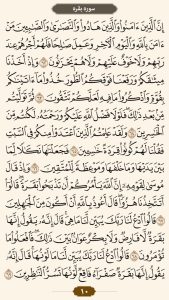 سوره بقره
إِنَّ الَّذِينَ ءَامَنُوا وَالَّذِينَ هَادُوا وَالنَّصَارَىٰ وَالصَّابِئِينَ مَنْ
ءَامَنَ بِاللَّهِ وَالْيَوْمِ الْآخِرِ وَعَمِلَ صَالِحًا فَلَهُمْ أَجْرُهُمْ عِندَ
رَبِّهِمْ وَلَا خَوْفٌ عَلَيْهِمْ وَلَا هُمْ يَحْزَنُونَ ﴿٦٢﴾ وَإِذْ أَخَذْنَا
مِيثَاقَكُمْ وَرَفَعْنَا فَوْقَكُمُ الطُّورَ خُذُوا مَا ءَاتَيْنَاكُم
بِقُوَّةٍ وَاذْكُرُوا مَا فِيهِ لَعَلَّكُمْ تَتَّقُونَ ﴿٦٣﴾ ثُمَّ تَوَلَّيْتُم
مِّن بَعْدِ ذَٰلِكَ فَلَوْلَا فَضْلُ اللَّهِ عَلَيْكُمْ وَرَحْمَتُهُ لَكُنتُم مِّنَ
الْخَاسِرِينَ ﴿٦٤﴾ وَلَقَدْ عَلِمْتُمُ الَّذِينَ اعْتَدَوْا مِنكُمْ فِي السَّبْتِ
فَقُلْنَا لَهُمْ كُونُوا قِرَدَةً خَاسِئِينَ ﴿٦٥﴾ فَجَعَلْنَاهَا نَكَالًا لِّمَا
بَيْنَ يَدَيْهَا وَمَا خَلْفَهَا وَمَوْعِظَةً لِّلْمُتَّقِينَ ﴿٦٦﴾ وَإِذْ قَالَ
مُوسَىٰ لِقَوْمِهِ إِنَّ اللَّهَ يَأْمُرُكُمْ أَن تَذْبَحُوا بَقَرَةً قَالُوا
أَتَتَّخِذُنَا هُزُوًا قَالَ أَعُوذُ بِاللَّهِ أَنْ أَكُونَ مِنَ الْجَاهِلِينَ
﴿٦٧﴾ قَالُوا ادْعُ لَنَا رَبَّكَ يُبَيِّن لَّنَا مَا هِيَ قَالَ إِنَّهُ يَقُولُ إِنَّهَا
بَقَرَةٌ لَّا فَارِضٌ وَلَا بِكْرٌ عَوَانٌ بَيْنَ ذَٰلِكَ فَافْعَلُوا مَا
تُؤْمَرُونَ ﴿٦٨﴾ قَالُوا ادْعُ لَنَا رَبَّكَ يُبَيِّن لَّنَا مَا لَوْنُهَا قَالَ إِنَّهُ
يَقُولُ إِنَّهَا بَقَرَةٌ صَفْرَاءُ فَاقِعٌ لَّوْنُهَا تَسُرُّ النَّاظِرِينَ ﴿٦٩﴾
١٠